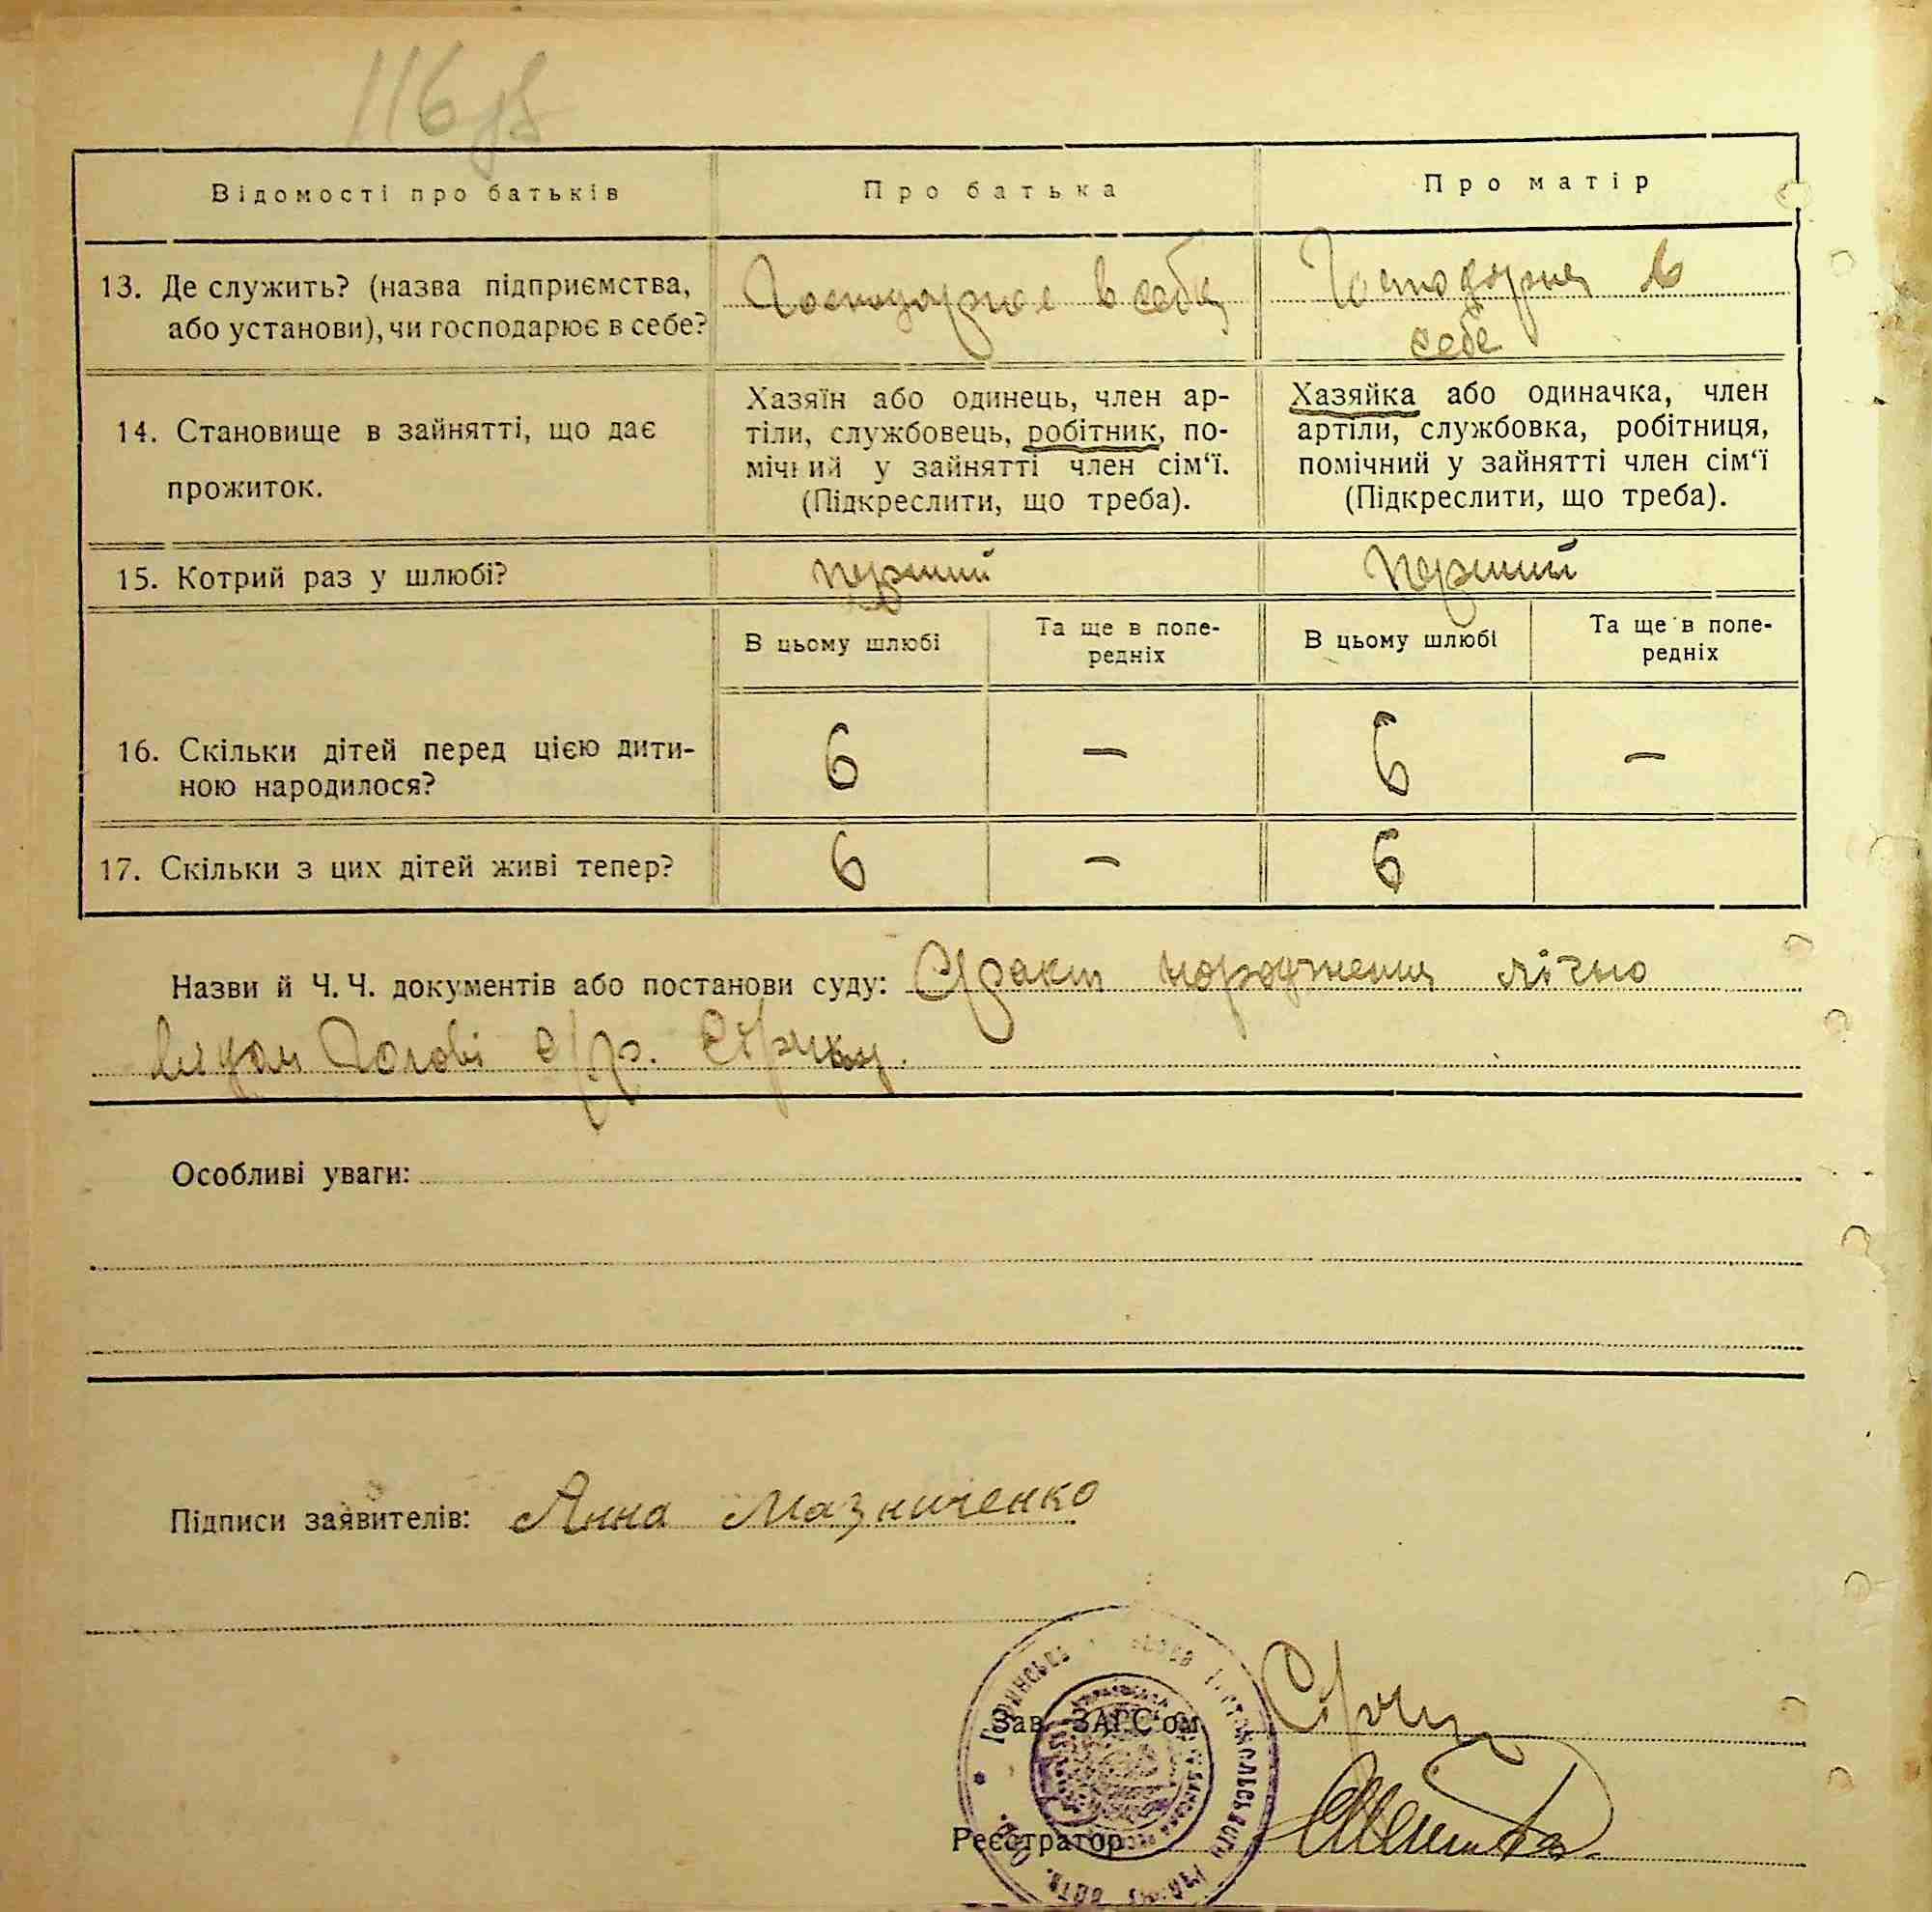 116
Відомості про батьків
Про батька
Про матір
13. Де служить? (назва підприємства,
або установи), чи господарює в себе?
Господарює в себе
Господарює в
себе
14. Становище в зайнятті, що дає
прожиток.
Хазяїн або одинець, член ар-
тіли, службовець, робітник, по-
мічний у зайнятті член сім‘ї.
(Підкреслити, що треба).
Хазяйка або одиначка, член
артіли, службовка, робітниця,
помічний у зайнятті член сім‘ї
(Підкреслити, що треба).
15. Котрий раз у шлюбі?
перший
перший
В цьому шлюбі
Та ще в попе-
редніх
В цьому шлюбі
Та ще в попе-
редніх
16. Скільки дітей перед цією дити-
ною народилося?
6
—
6
—
17. Скільки з цих дітей живі тепер?
6
—
6
Назви й Ч. Ч. документів або постанови суду: факт народження лічно
Голові
Особливі уваги:
Підписи заявителів: Анна Мазниченко
Зав. ЗАГС'ом
Реєстратор